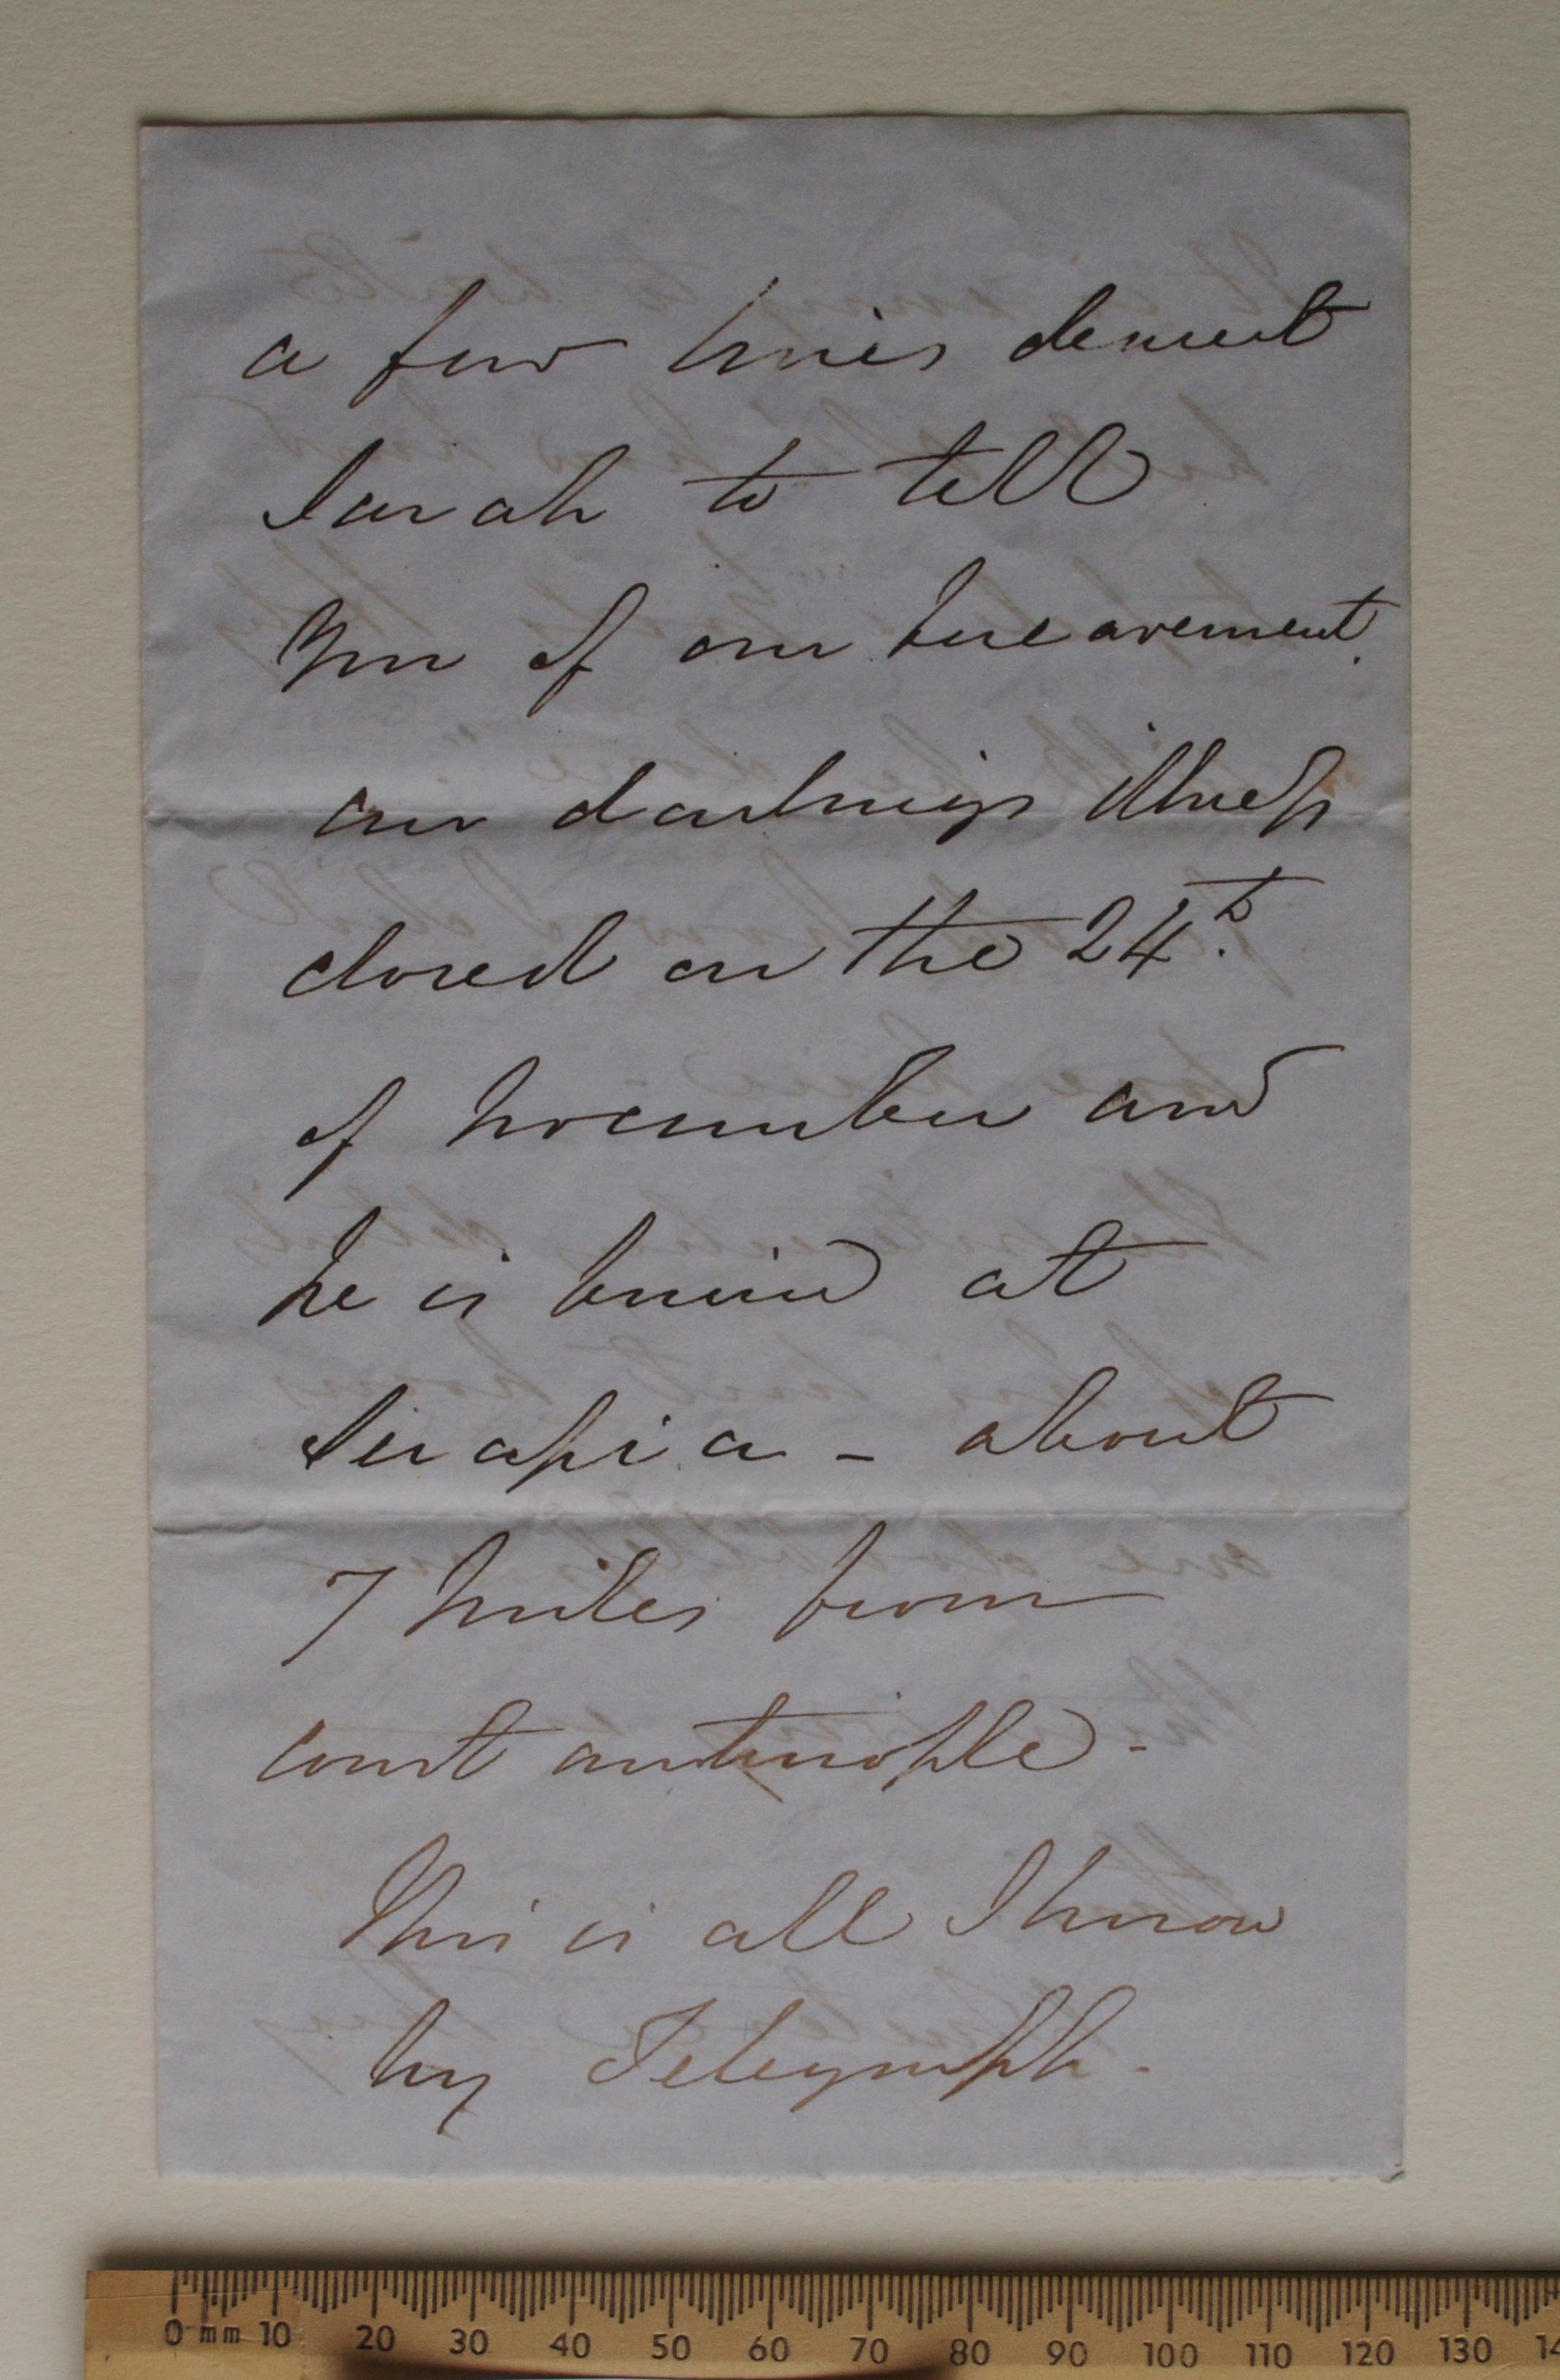 a few lines dearest
Sarah to tell
you of our bereavement.
our darlings illness
closed on the 24th.
of November and
he is buried at
Terapia - about
7 miles from
Constantinople -
This is all I know
by Telegraph -
0 mm 10 20 30 40 50 60 70 80 90 100 110 120 130 14